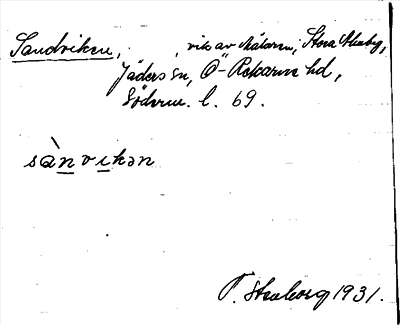 Sandviken, , vik av Mälaren, Stora Sundby,
Jäders sn, Ö-Rekarne hd,
Söderm. l. 69.
sànvikən
F. Streborg 1931.